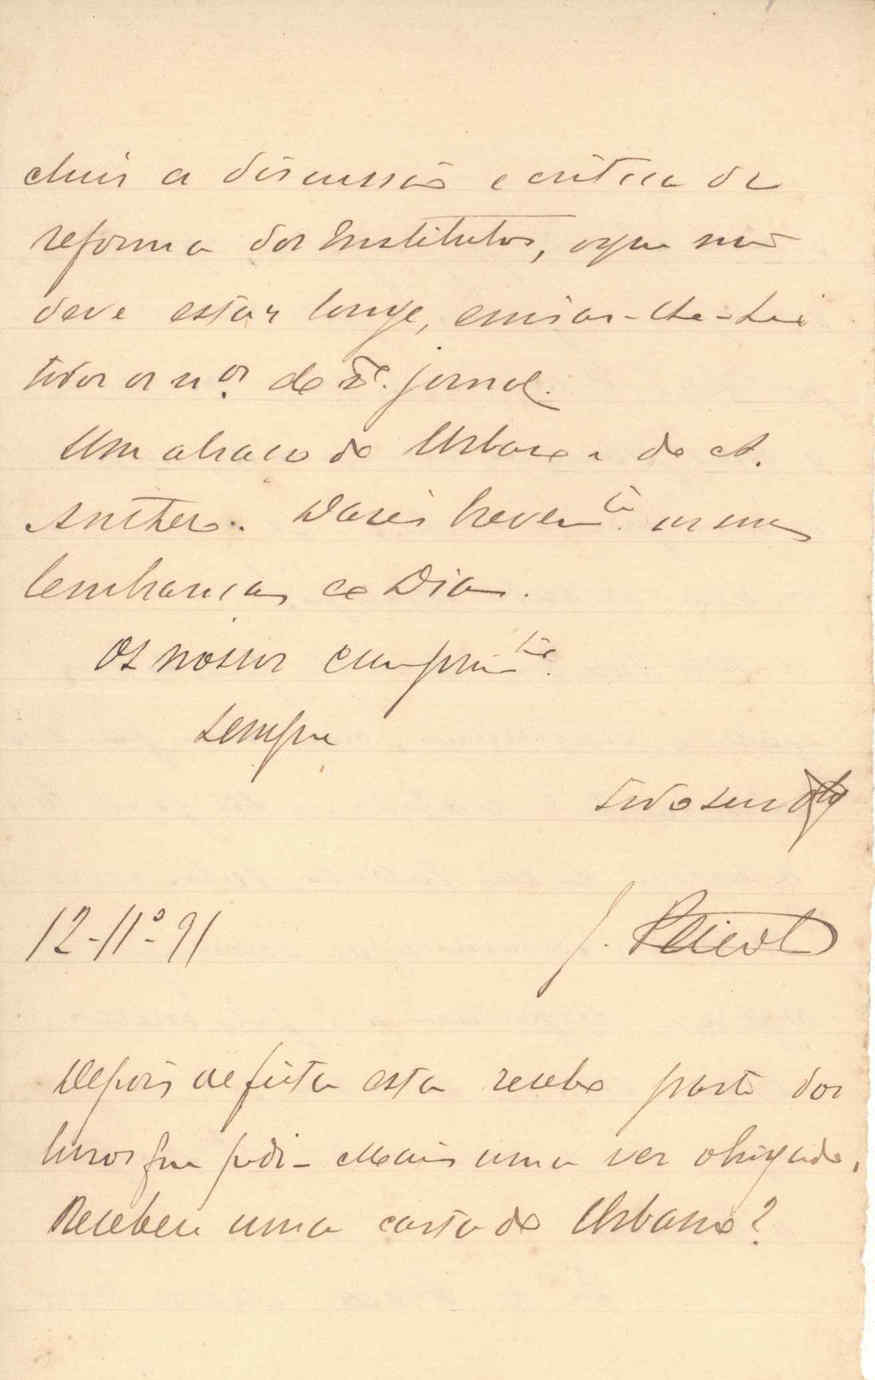 cluir a discussão e critica da
reforma dos Institutos, o que não
deve estar longe, enviar-lhe-hei
todos os n.os do jornal.
Um abraço do Urbano e do A.
Anthero. Darei brevem.te as suas
lembranças ao Dias.
Os nossos cumprim.tos
Sempre
Todo seu
12-11º-91
J.
Depois de feita esta recebo parte dos
livros que pedi - Mais uma vez obrigado.
Recebeu uma carta do Urbano?